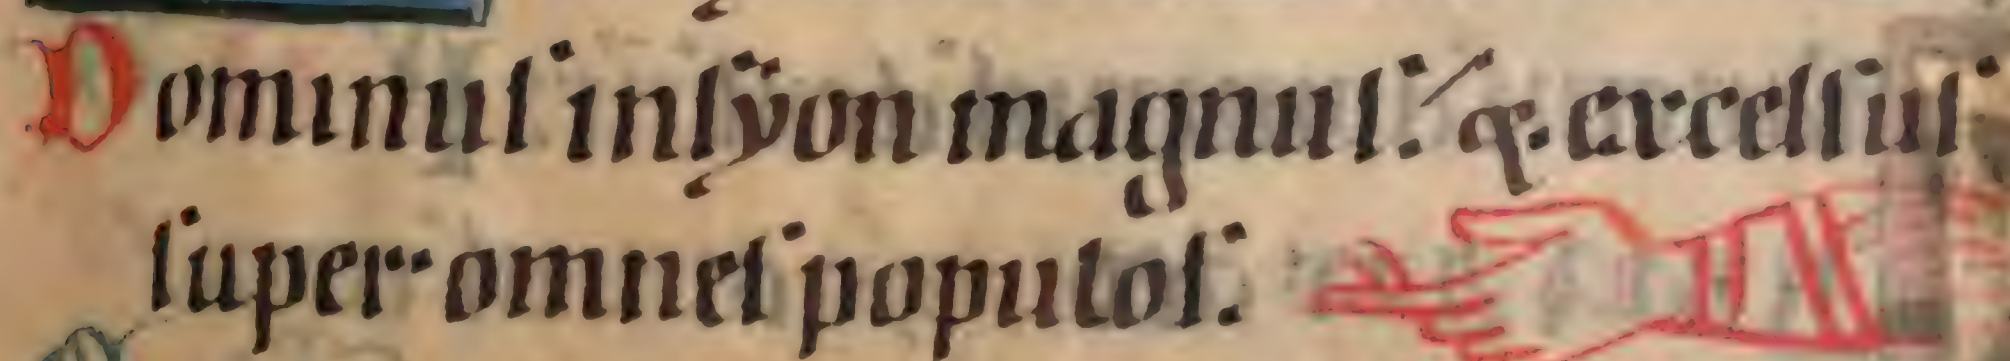 Dominuſ in ſẏon magnuſ: ⁊ excelſuſ
ſuper omneſ populoſ.